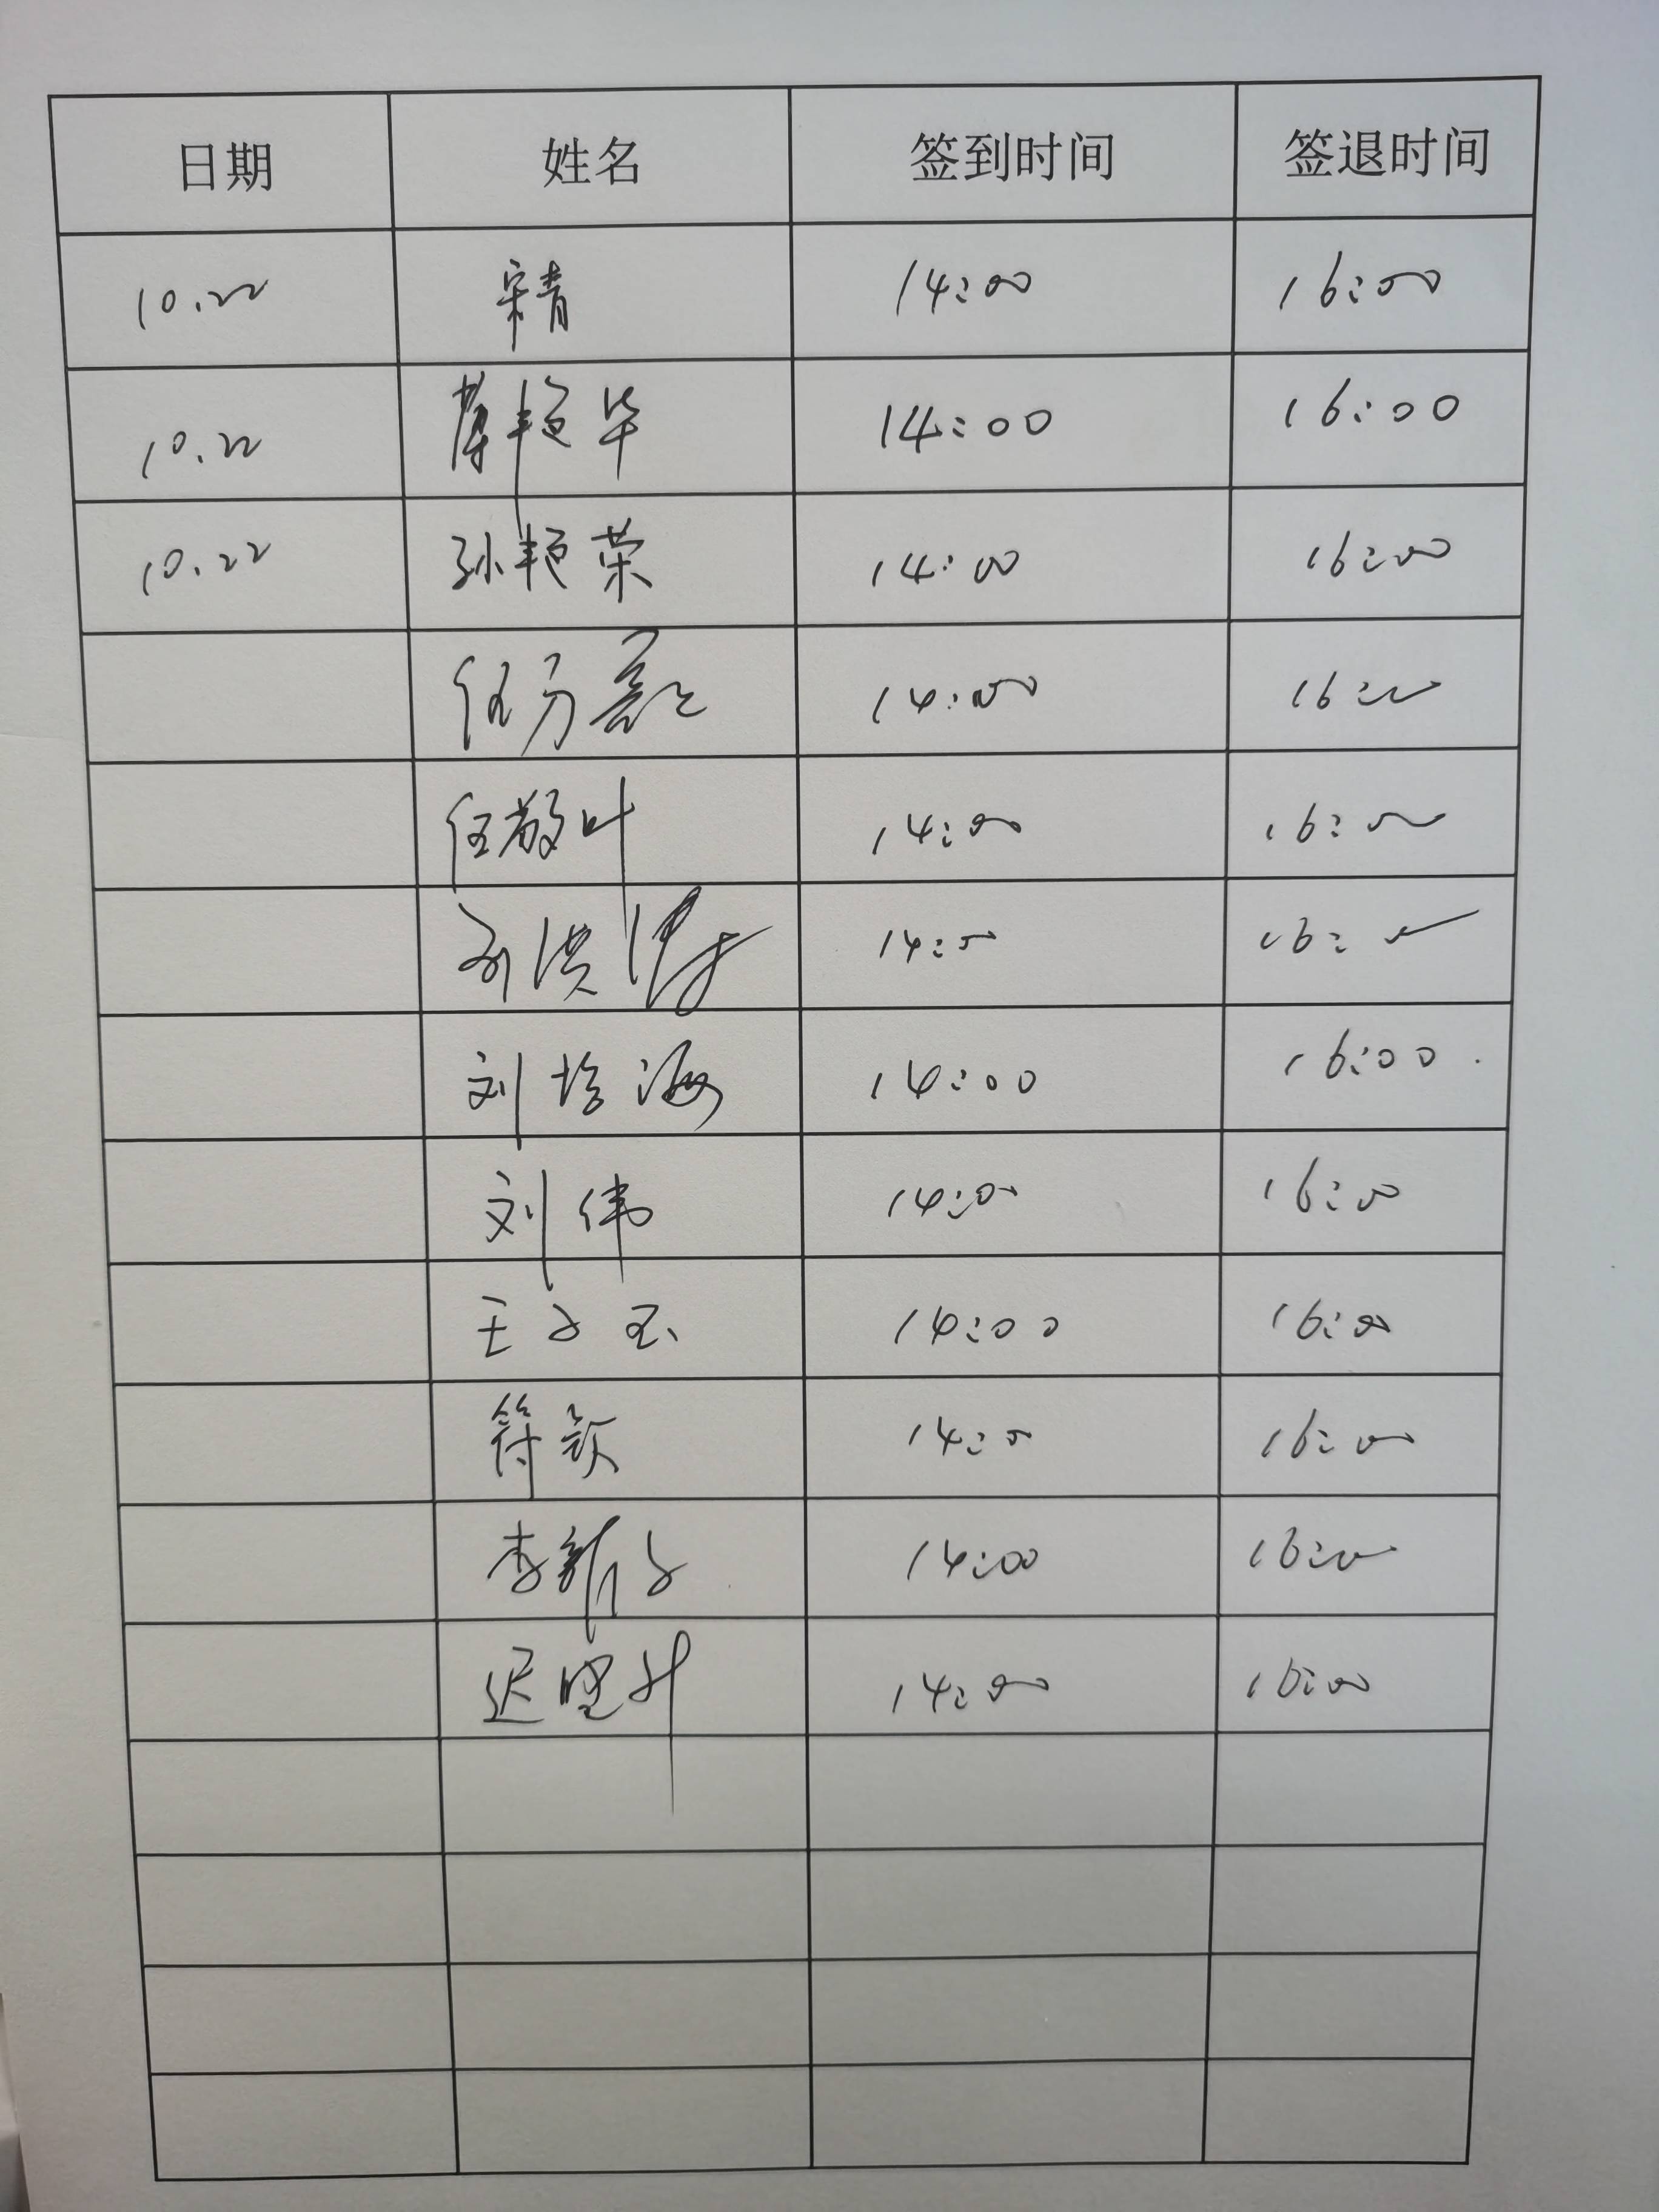 日期 姓名 签到时间 签退时间
10.22 宋青 14:00 16:00
10.22 薛艳华 14:00 16:00
10.22 孙艳荣 14:00 16:00
任 14:00 16:00
任敬叶 14:00 16:00
刘洪 14:00 16:00
刘培海 14:00 16:00
刘伟 14:00 16:00
王子玉 14:00 16:00
符颖 14:00 16:00
李新 14:00 16:00
迟 14:00 16:00